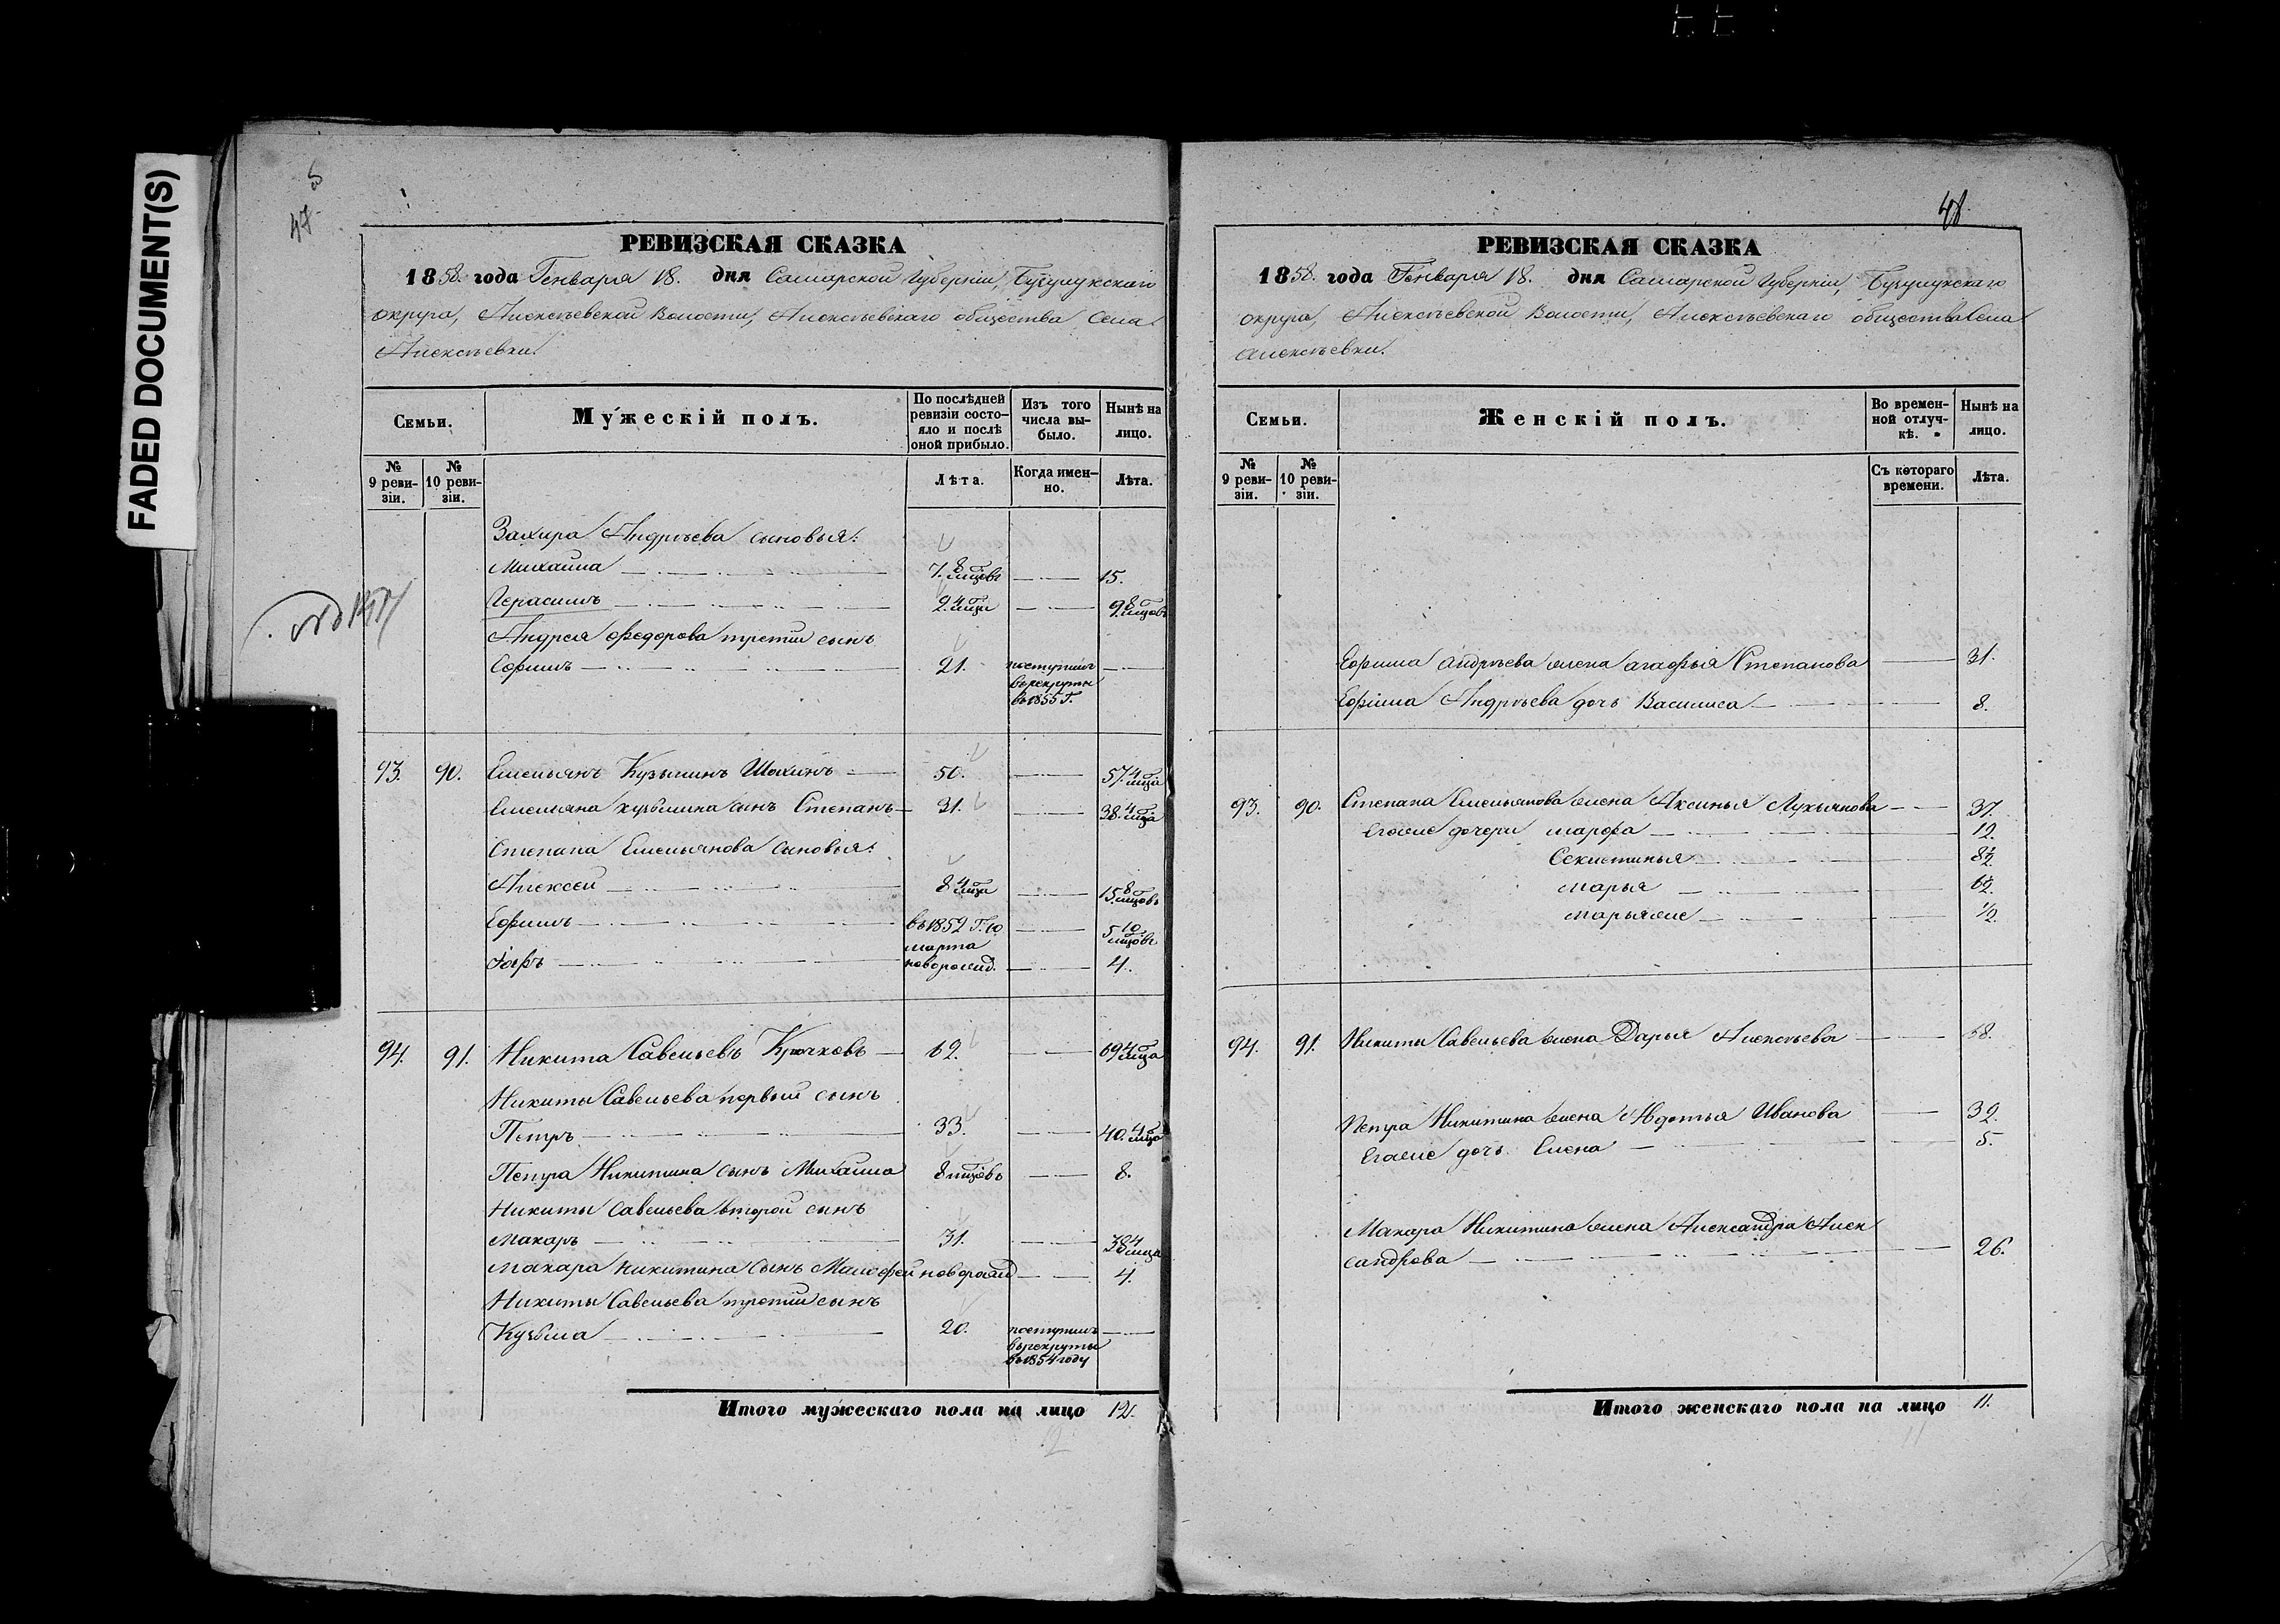 FADED DOCUMENT(S)
47
РЕВИЗСКАЯ СКАЗКА
1858. года Генваря 18. дня Самарской Губерніи, Бузулукскаго
округа, Алексѣевской Волости, Алексѣевскаго общества Села
Алексѣевки.
Семьи.
Мужескій полъ.
По послѣдней ревизіи состояло и послѣ оной прибыло.
Изъ того числа выбыло.
Нынѣ на лицо.
№ 9 ревизіи.
№ 10 ревизіи.
Лѣта.
Когда именно.
Лѣта.
Захара Андрѣева сыновья:
Михайла 7. 8 мцовъ 15.
Герасимъ 2. 4 мца 9. 8 мцовъ
Андрея Федорова третій сынъ
Ефимъ 21. поступилъ
въ рекруты
въ 1855 г.
93. 90. Емельянъ Кузьминъ Шохинъ 50. 57. 4 мца
Емельяна Кузьмина сынъ Степанъ 31. 38. 4 мца
Степана Емельянова сыновья:
Алексей 8 4 мца 15. 8 мцовъ
Ефимъ въ 1852 г. 10 марта 5 10 мцовъ
Іовъ новорожд. 4.
94. 91. Никита Савельевъ Крючковъ 62. 69 4 мца
Никиты Савельева первый сынъ
Петръ 33. 40. 4 мца
Петра Никитина сынъ Михайла 8 мцовъ 8.
Никиты Савельева второй сынъ
Макаръ 31. 38 4 мца
Макара Никитина сынъ новорожд 4.
Никиты Савельева третій сынъ
Кузьма 20. поступилъ
въ рекруты
въ 1854 году
Итого мужескаго пола на лицо 12.
12
48
РЕВИЗСКАЯ СКАЗКА
1858. года Генваря 18. дня Самарской Губерніи, Бузулукскаго
округа, Алексѣевской Волости, Алексѣевскаго общества Села
Алексѣевки.
Семьи.
Женскій полъ.
Во временной отлучкѣ.
Нынѣ на лицо.
№ 9 ревизіи.
№ 10 ревизіи.
Съ котораго времени.
Лѣта.
Ефима Андрѣева жена Агафья Степанова 31.
Ефима Андрѣева дочь Василиса 8.
93. 90. Степана Емельянова жена Аксинья Лукьянова 37.
Егоже дочери Марфа 12.
Секлетинья 8½
Марья 6½.
Марья же ½.
94. 91. Никиты Савельева жена Дарья Алексѣева 58.
Петра Никитина жена Авдотья Иванова 32.
Егоже дочь Елена 5.
Макара Никитина жена Александра Алек
сандрова 26.
Итого женскаго пола на лицо 11.
11